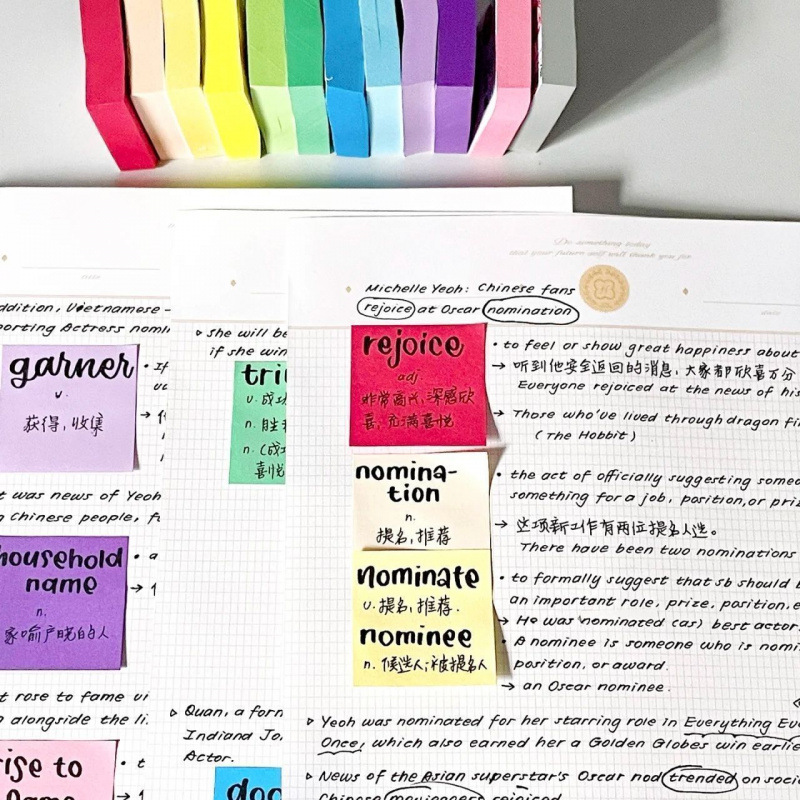 Do something today
that your future self will thank you for
date
date
Michelle Yeoh: Chinese fans
rejoice at Oscar nomination
rejoice
adj.
非常高兴,深感欣
喜,充满喜悦
• to feel or show great happiness about
→ 听到他安全返回的消息,大家都欣喜万分
Everyone rejoiced at the news of his
→ Those who've lived through dragon fi
(The Hobbit)
nomina-
tion
n.
提名,推荐
• the act of officially suggesting some
something for a job, position, or priz
→ 这项新工作有两位提名人选。
There have been two nominations
nominate
v. 提名,推荐.
nominee
n. 候选人;被提名人
• to formally suggest that sb should b
an important role, prize, position, e
→ He was nominated (as) best actor
• A nominee is someone who is nomi
position, or award.
→ an Oscar nominee.
▹ Yeoh was nominated for her starring role in Everything Eve
Once, which also earned her a Golden Globes win earlie
▹ News of the Asian superstar's Oscar nod trended on soci
Chinese moviegoers rejoiced
▹ She will be
if she win
tri
v. 成功
n. 胜
n. (成
喜悦
▹ Quan, a forn
Indiana Jo
Actor.
doc
ddition, Vietnamese -
porting Actress nomi
garner
v.
获得,收集
• If
t was news of Yeoh
n Chinese people, f
household
name
n.
家喻户晓的人
• a
→ 1
t rose to fame vi
n alongside the li
rise to
fame
• t
→ 1